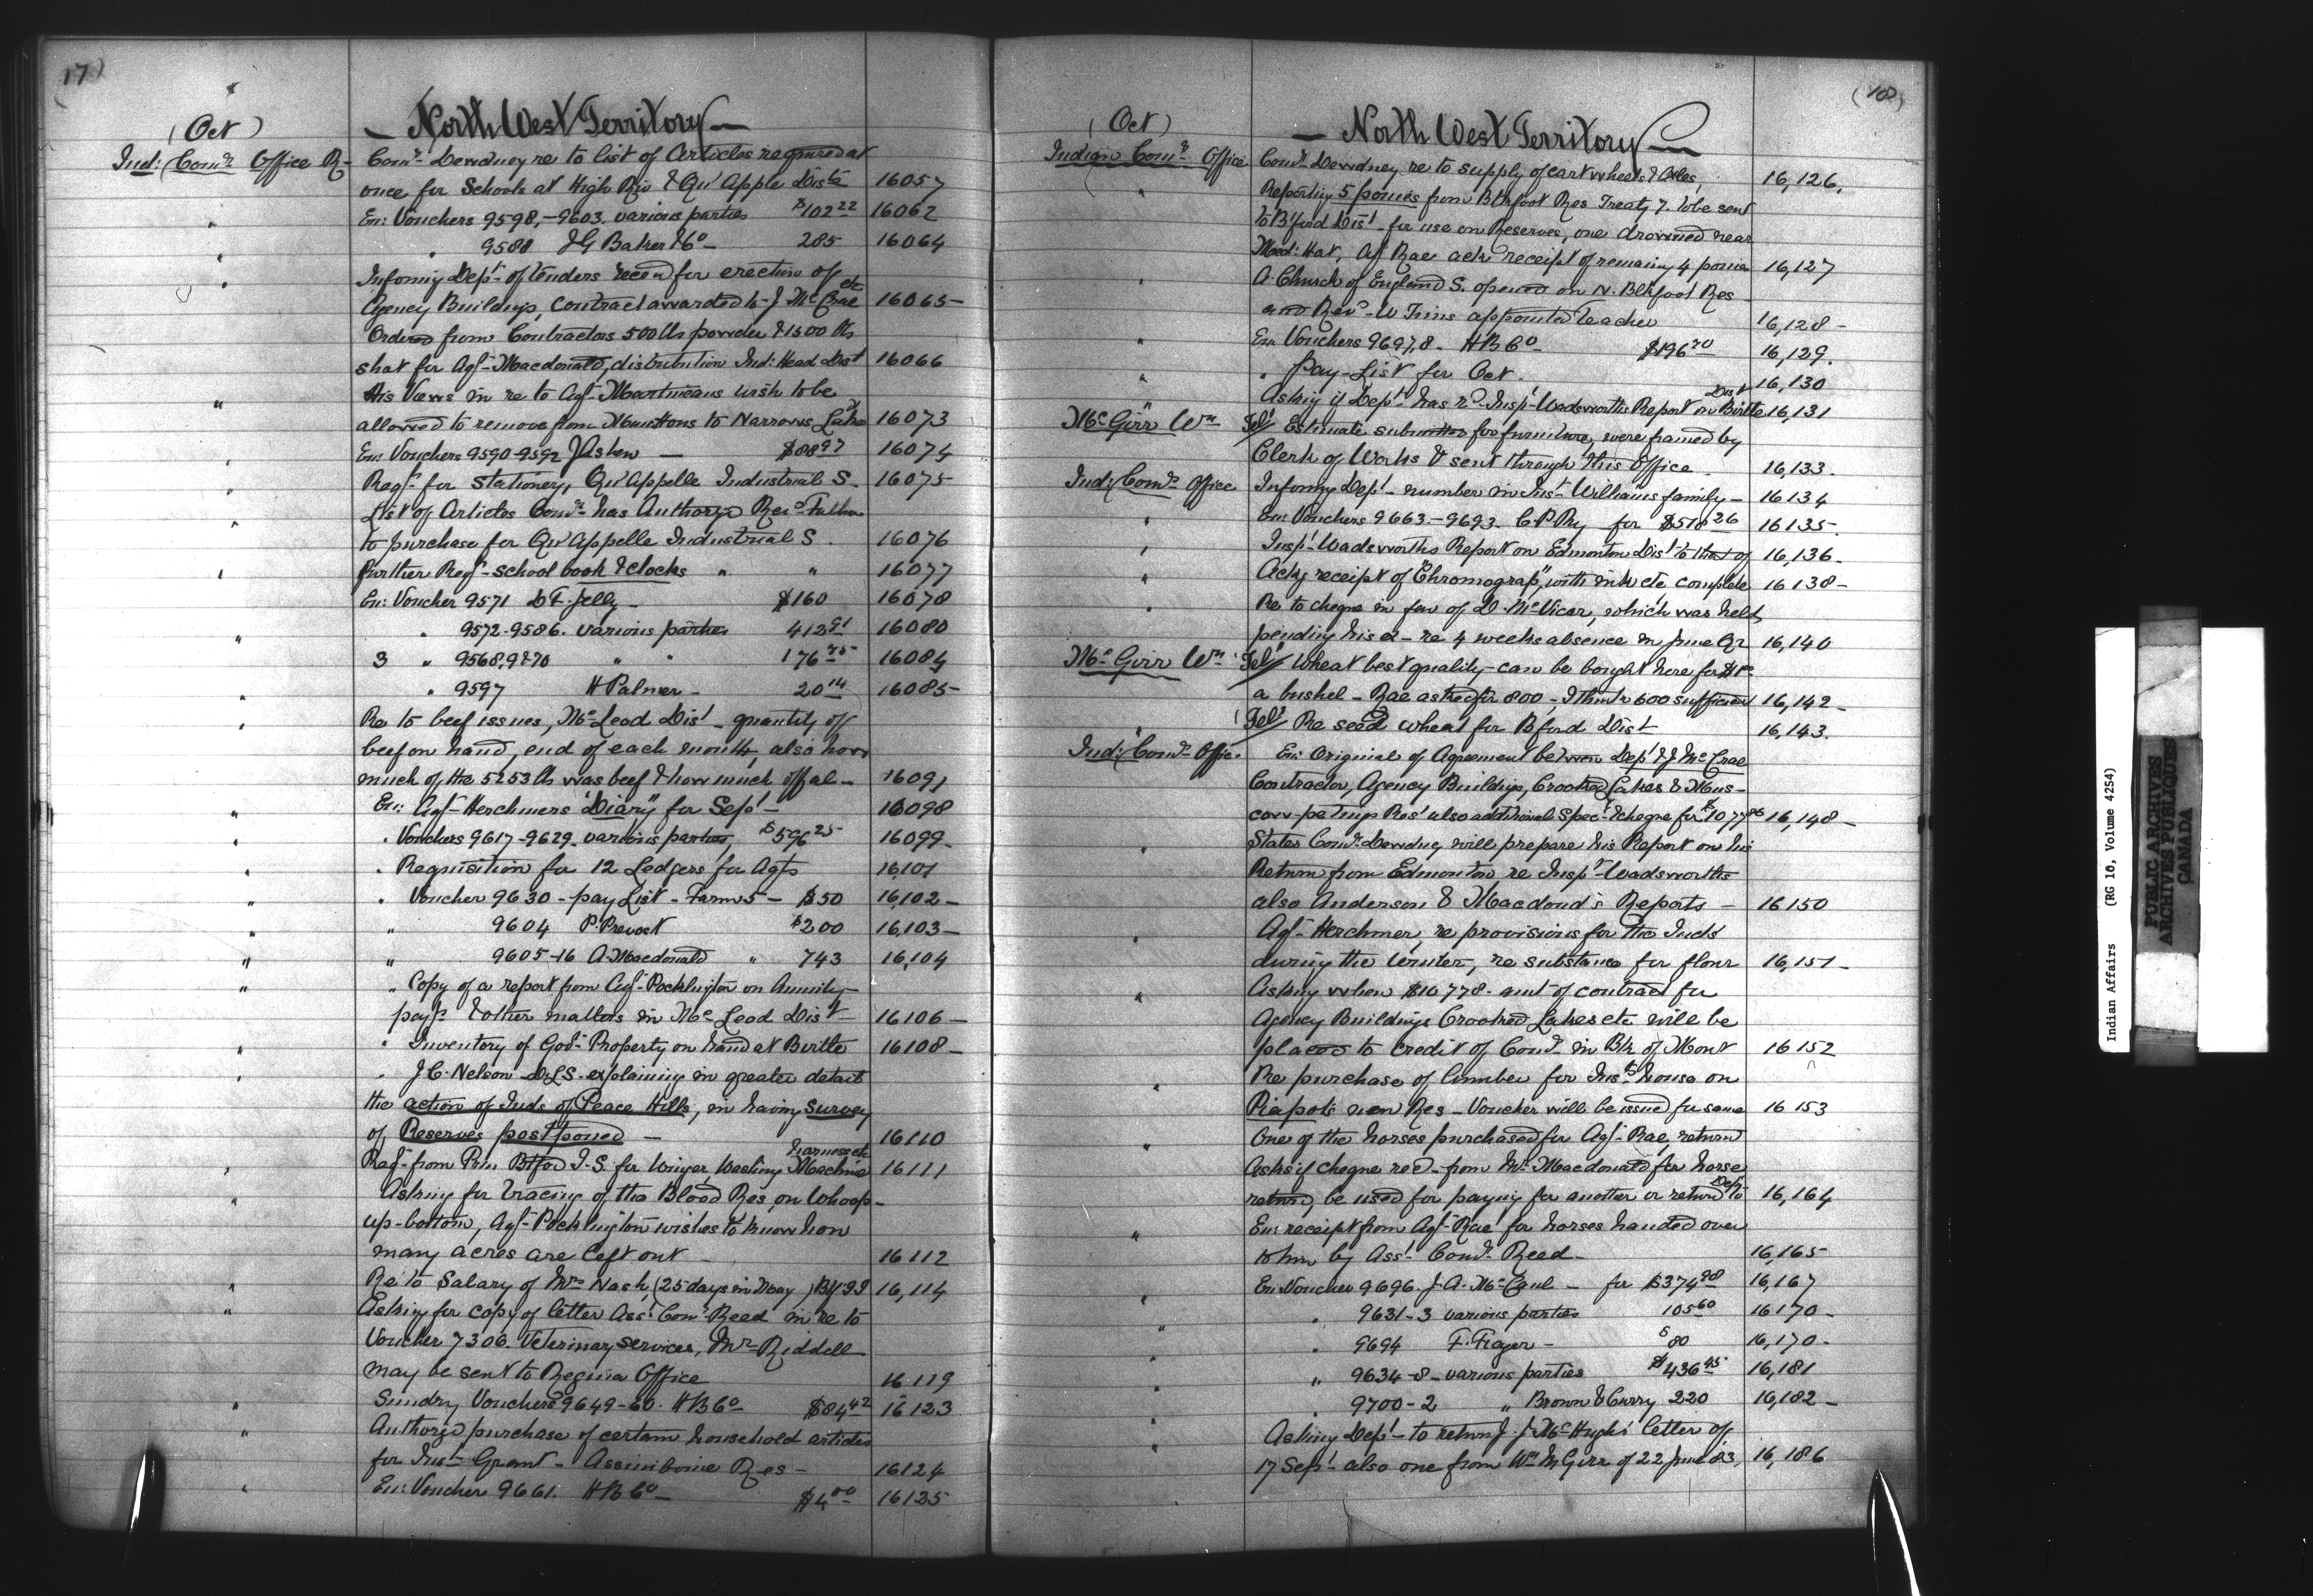 17)
(Oct)
— North West Territory —
Ind: Comr Office R- Comr Dewdney re to list of Articles required at
once for Schools at High Riv & Qu'Apple Dists 16057
" En: Vouchers 9598,-9603. various parties $102 22 16062
" " 9588 J G Baker & Co - 285 16064
" Informg Dept- of tenders recd for erection of
Agency Buildings, contract awarded to J McCrae etc 16065-
Ordered from Contractors 500 lbs powder & 1500 lbs
shot for Agt- Macdonald, distribution Ind: Head Dist 16066
" His Views in re to Agt- Martineaus wish to be
allowed to remove from Manitoba to Narrows Lake 16073
" En: Vouchers 9590-9592 — $88 97 16074
" Reqt- for Stationery, Qu'Appelle Industrial S- 16075-
" List of Articles Comr has Authorzd Revd
to purchase for Qu'Appelle Industrial S. 16076
" further Reqt- school book & clocks " " 16077
En: Voucher 9571 D F. Jelly - $160 16078
" " 9572-9586. various parties 412 91 16080
3 " 9568,9&70 " " 176 75 16084
" " 9597 H Palmer - 20 14 16085-
" Re to beef issues, McLeod Dist - quantity of
beef on hand, end of each month, also how
much of the 5253 lbs was beef & how much offal - 16091
" En: Agt- Herchmers "Diary" for Sept - 16098
" " Vouchers 9617-9629. various parties, $596 25 16099-
" " Requisition for 12 Ledgers for Agts 16101
" " Voucher 9630 - pay List - Farms - $50 16,102-
" " 9604 P. Prevost $200 16,103-
" " 9605-16 A. Macdonald " 743 16,104
" " Copy of a report from Agt- Pocklington on Annuity
payts & other matters in McLeod Dist 16106-
" " Inventory of Govt- Property on hand at Birtle 16108-
" " J C. Nelson DLS. explaining in greater detail
the action of Inds of Peace Hills, in having survey
of Reserves postponed - 16110
" Reqt- from Prin. Btford I.S. for Winger Washing Machine harness etc 16111
" Asking for tracing of the Blood Res, on Whoop-
up-bottom, Agt- Pocklington wishes to know how
many acres are left out - 16112
" Re to Salary of Mrs Nash, (25 days in May ) 16,114
" Asking for copy of letter Asst Comr Reed in re to
Voucher 7306. Veterinary services, Mr- Riddell
may be sent to Regina Office 16119
" Sundry Vouchers 9649-60. H B Co- $84 42 16123
" Authorzg purchase of certain household articles
for Inst- Grant - Assiniboine Res - 16124
" En: Voucher 9661. H B Co- $4 00 16125
(18)
(Oct)
— North West Territory —
Indian Comr Office Comr Dewdney re to supply of cart wheels & Axles, 16,126,
" Reporting 5 ponies from Blkfoot Res Treaty 7. to be sent
to B'ford Dist - for use on Reserves, one drowned near
Med: Hat, Agt Rae acks receipt of remaing 4 ponies 16,127
" A Church of England S. opened on N. Blkfoot Res
and Revd- W Tims appointed teacher 16,128-
" En: Vouchers 9697,8. H B Co $196 70 16,129.
" " Pay-List for Oct. 16,130
" Asking if Dept- has rd- Insp- Wadsworths Report on Birtle Dist 16,131
McGirr Wm Tel/ Estimate submitted for furniture, were framed by
Clerk of Works & sent through this Office. 16,133.
Ind: Comr Office Informg Dept- number in Inst- Williams family- 16134
" En: Vouchers 9663-9693- C P Ry for $518 26 16135-
" Insp- Wadsworths Report on Edmonton Dist to that of 16,136-
" Ackg receipt of "Chromograp", with ink etc. complete 16138-
" Re to cheque in fav of D. McVicar, which was held,
pending his ex- re 4 weeks absence in June Qr 16,140
McGirr Wm Tel/ Wheat best quality can be bought here for $1 00
a bushel - Rae asked for 800, I think 600 sufficient 16,142-
(Tel/ Re seed wheat for B ford Dist 16,143.
Ind: Comr Office En: Original of Agreement between Dept & J McCrae
Contractor, Agency Buildings, Crooked Lakes & Mus-
cow-petungs Res' also additional Spect- & cheque for $1077 80 16,148-
" States Comr Dewdney will prepare his Report on his
Return from Edmonton re Insp- Wadsworths
also Anderson & Macdond's Reports - 16150
" Agt- Herchmer, re provisions for the Inds
during the winter, re substance for flour 16,151-
" Asking when $10 778- amt of contract for
Agency Buildings Crooked Lakes etc will be
placed to credit of Comr- in Bk of Mont 16152
" Re purchase of lumber for Insts house on
Piapots new Res - Voucher will be issued for same 16153
" One of the horses purchased for Agt- Rae, return
Asks if cheque recd- from Mr Macdonald for horse
returnd, be used for paying for another or returnd to Dept 16,164
" En: receipt from Agt- Rae for horses handed over
to him by Asst- Comr- Reed - 16,165-
" En: Voucher 9696. J. A. McCaul - for $374 98 16,167
" " 9631-3 various parties 105 60 16170-
" " 9694 F. Frazer - $80 16,170-
" " 9634-8- various parties $436 45 16,181
" " 9700-2 " Brown & Curry 220 16,182-
" Asking Dept- to return J. J. McHughs' letter of
17 Sept- also one from Wm McGirr of 22 June 83, 16,186
Indian Affairs (RG 10, Volume 4254)
PUBLIC ARCHIVES
ARCHIVES PUBLIQUES
CANADA